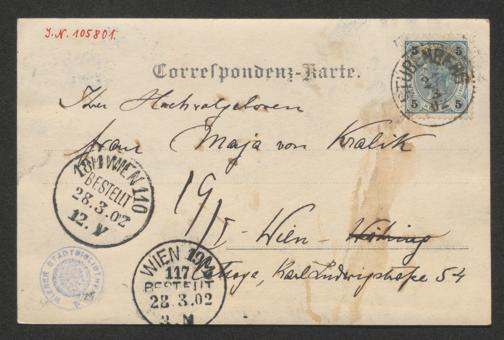 J.N. 105801.
5 5
STUBENBERG
02
5 5
Correspondenz-Karte.
Ihrer Hochwolgeboren
Frau Maja von Kralik
18/1 WIEN 110
BESTELLT
28.3.02
12. V
19/I
Wien - Währing
WIEN
117
BESTELLT
28.3.02
3. N
Karl Ludwigstraße 54
WIENER STADTBIBLIOTHEK